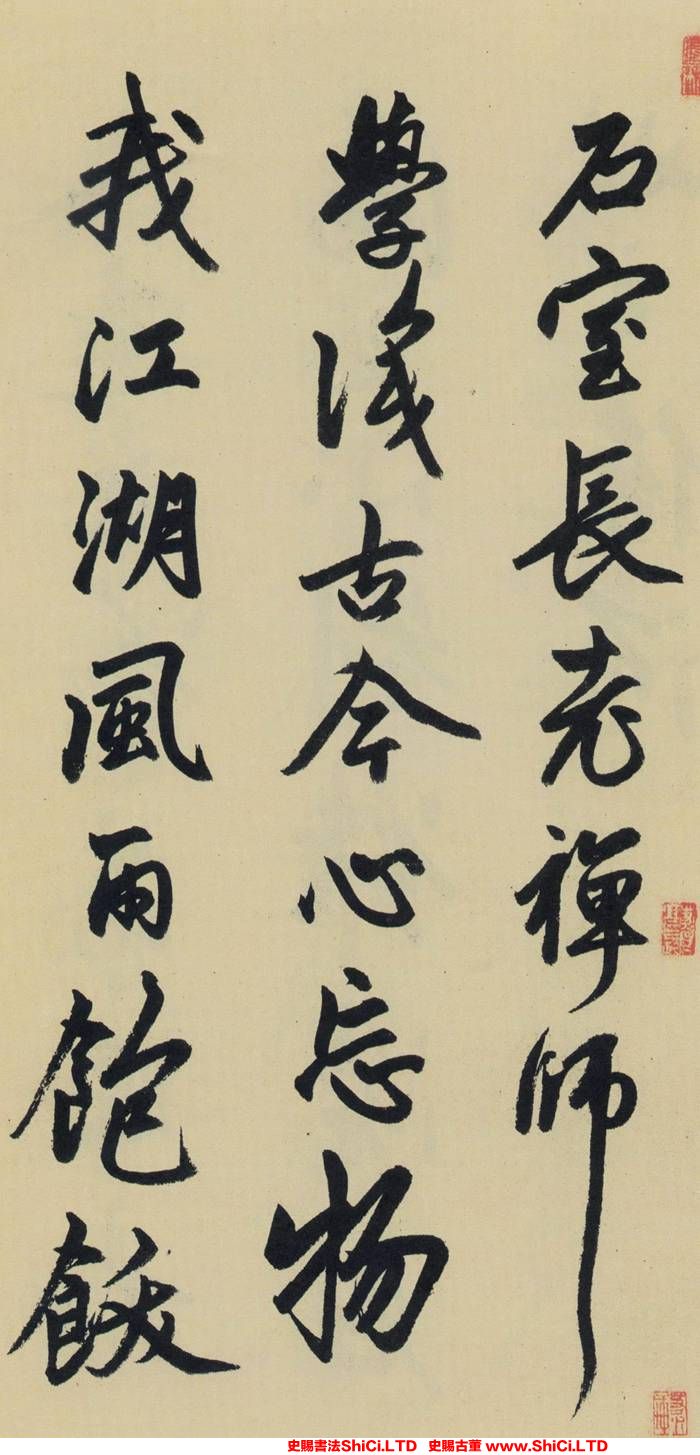 石室長老禪師
學識古今心忘物
我江湖風雨飽飫
史賜書法ShiCi.LTD 史賜古董 www.ShiCi.LTD